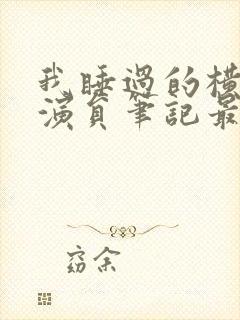 我睡過的橫
演員筆記最
窈余